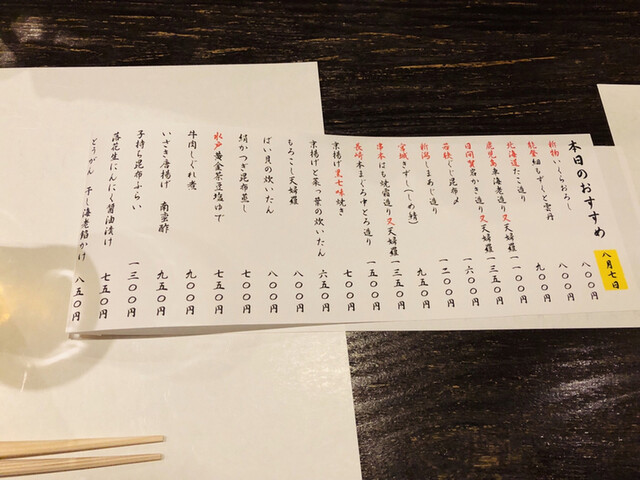 本日のおすすめ 八月七日
新物いくらおろし 八〇〇円
能登細もずくと雲丹 八〇〇円
北海道たこ造り 九〇〇円
鹿児島車海老造り又天婦羅 一一〇〇円
日間賀岩かき造り又天婦羅 一三五〇円
若狭ぐじ昆布〆 一六〇〇円
新潟しまあじ造り 一二〇〇円
宮城きずし(しめ鯖) 九五〇円
串本はも焼霜造り又天婦羅 一三五〇円
長崎本まぐろ中とろ造り 一五〇〇円
京揚げ黒七味焼き 七〇〇円
京揚げと菜っ葉の炊いたん 六五〇円
もろこし天婦羅 八〇〇円
ばい貝の炊いたん 八〇〇円
絹かつぎ昆布蒸し 七〇〇円
水戸黄金茶豆塩ゆで 七五〇円
牛肉しぐれ煮 九〇〇円
いさき唐揚げ 南蛮酢 九五〇円
子持ち昆布ふらい 一三〇〇円
落花生にんにく醤油漬け 七五〇円
とうがん 干し海老餡かけ 八五〇円